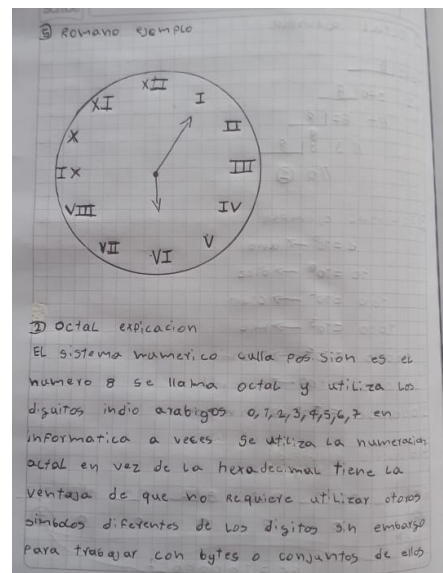 ⑤ Romano ejemplo
XII
XI
I
X
II
IX
III
VIII
IV
VII
V
VI
② Octal expicacion
EL sistema numerico culla pos sion es el
numero 8 se llama octal y utiliza Los
diguitos indio arabigos 0,1,2,3,4,5,6,7 en
informatica a veces se utiliza La numeracion
octal en vez de La hexadecimal tiene La
ventaja de que no Requiere utilizar otoros
simbolos diferentes de Los digitos sin embargo
Para trabajar con bytes o conjuntos de ellos